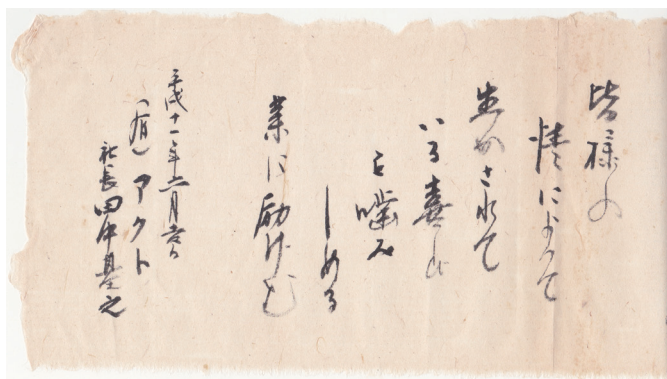 皆様の
情によって
生かされて
いる喜び
を噛み
しめる
業に励けむ
平成十一年二月吉日
(有)アクト
社長田中基之